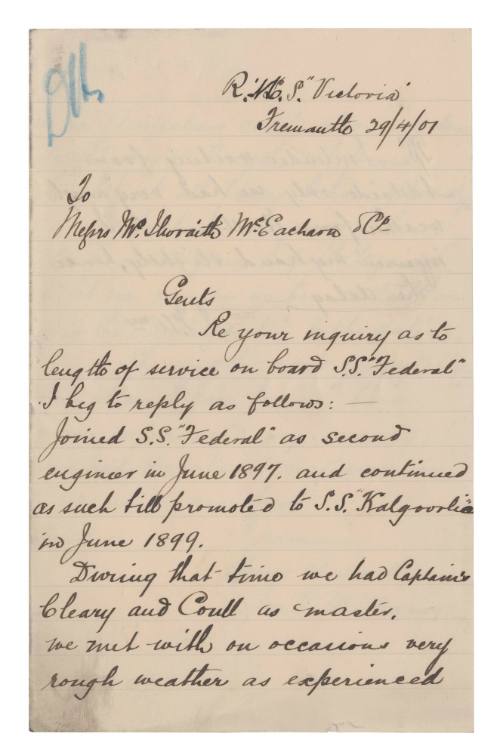 R.M.S. "Victoria"
Fremantle 29/4/01
To
Messrs McIlwraith McEacharn & Co
Gents
Re your inquiry as to
length of service on board S.S. "Federal"
I beg to reply as follows: —
Joined S.S. "Federal" as second
engineer in June 1897. and continued
as such till promoted to S.S. "Kalgoorlie"
in June 1899.
During that time we had Captains
Cleary and Coull as master.
we met with on occasions very
rough weather as experienced